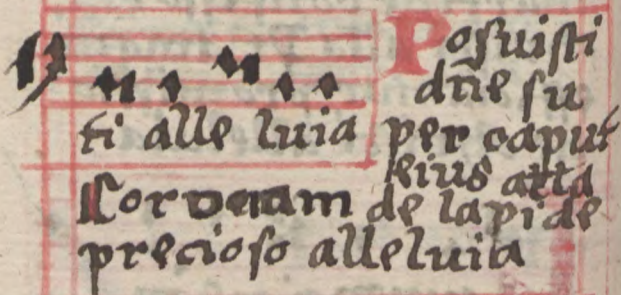 ti alle luia
Posuisti
dñe su
per caput
eius alla
Coronam de lapide
precioso alleluia